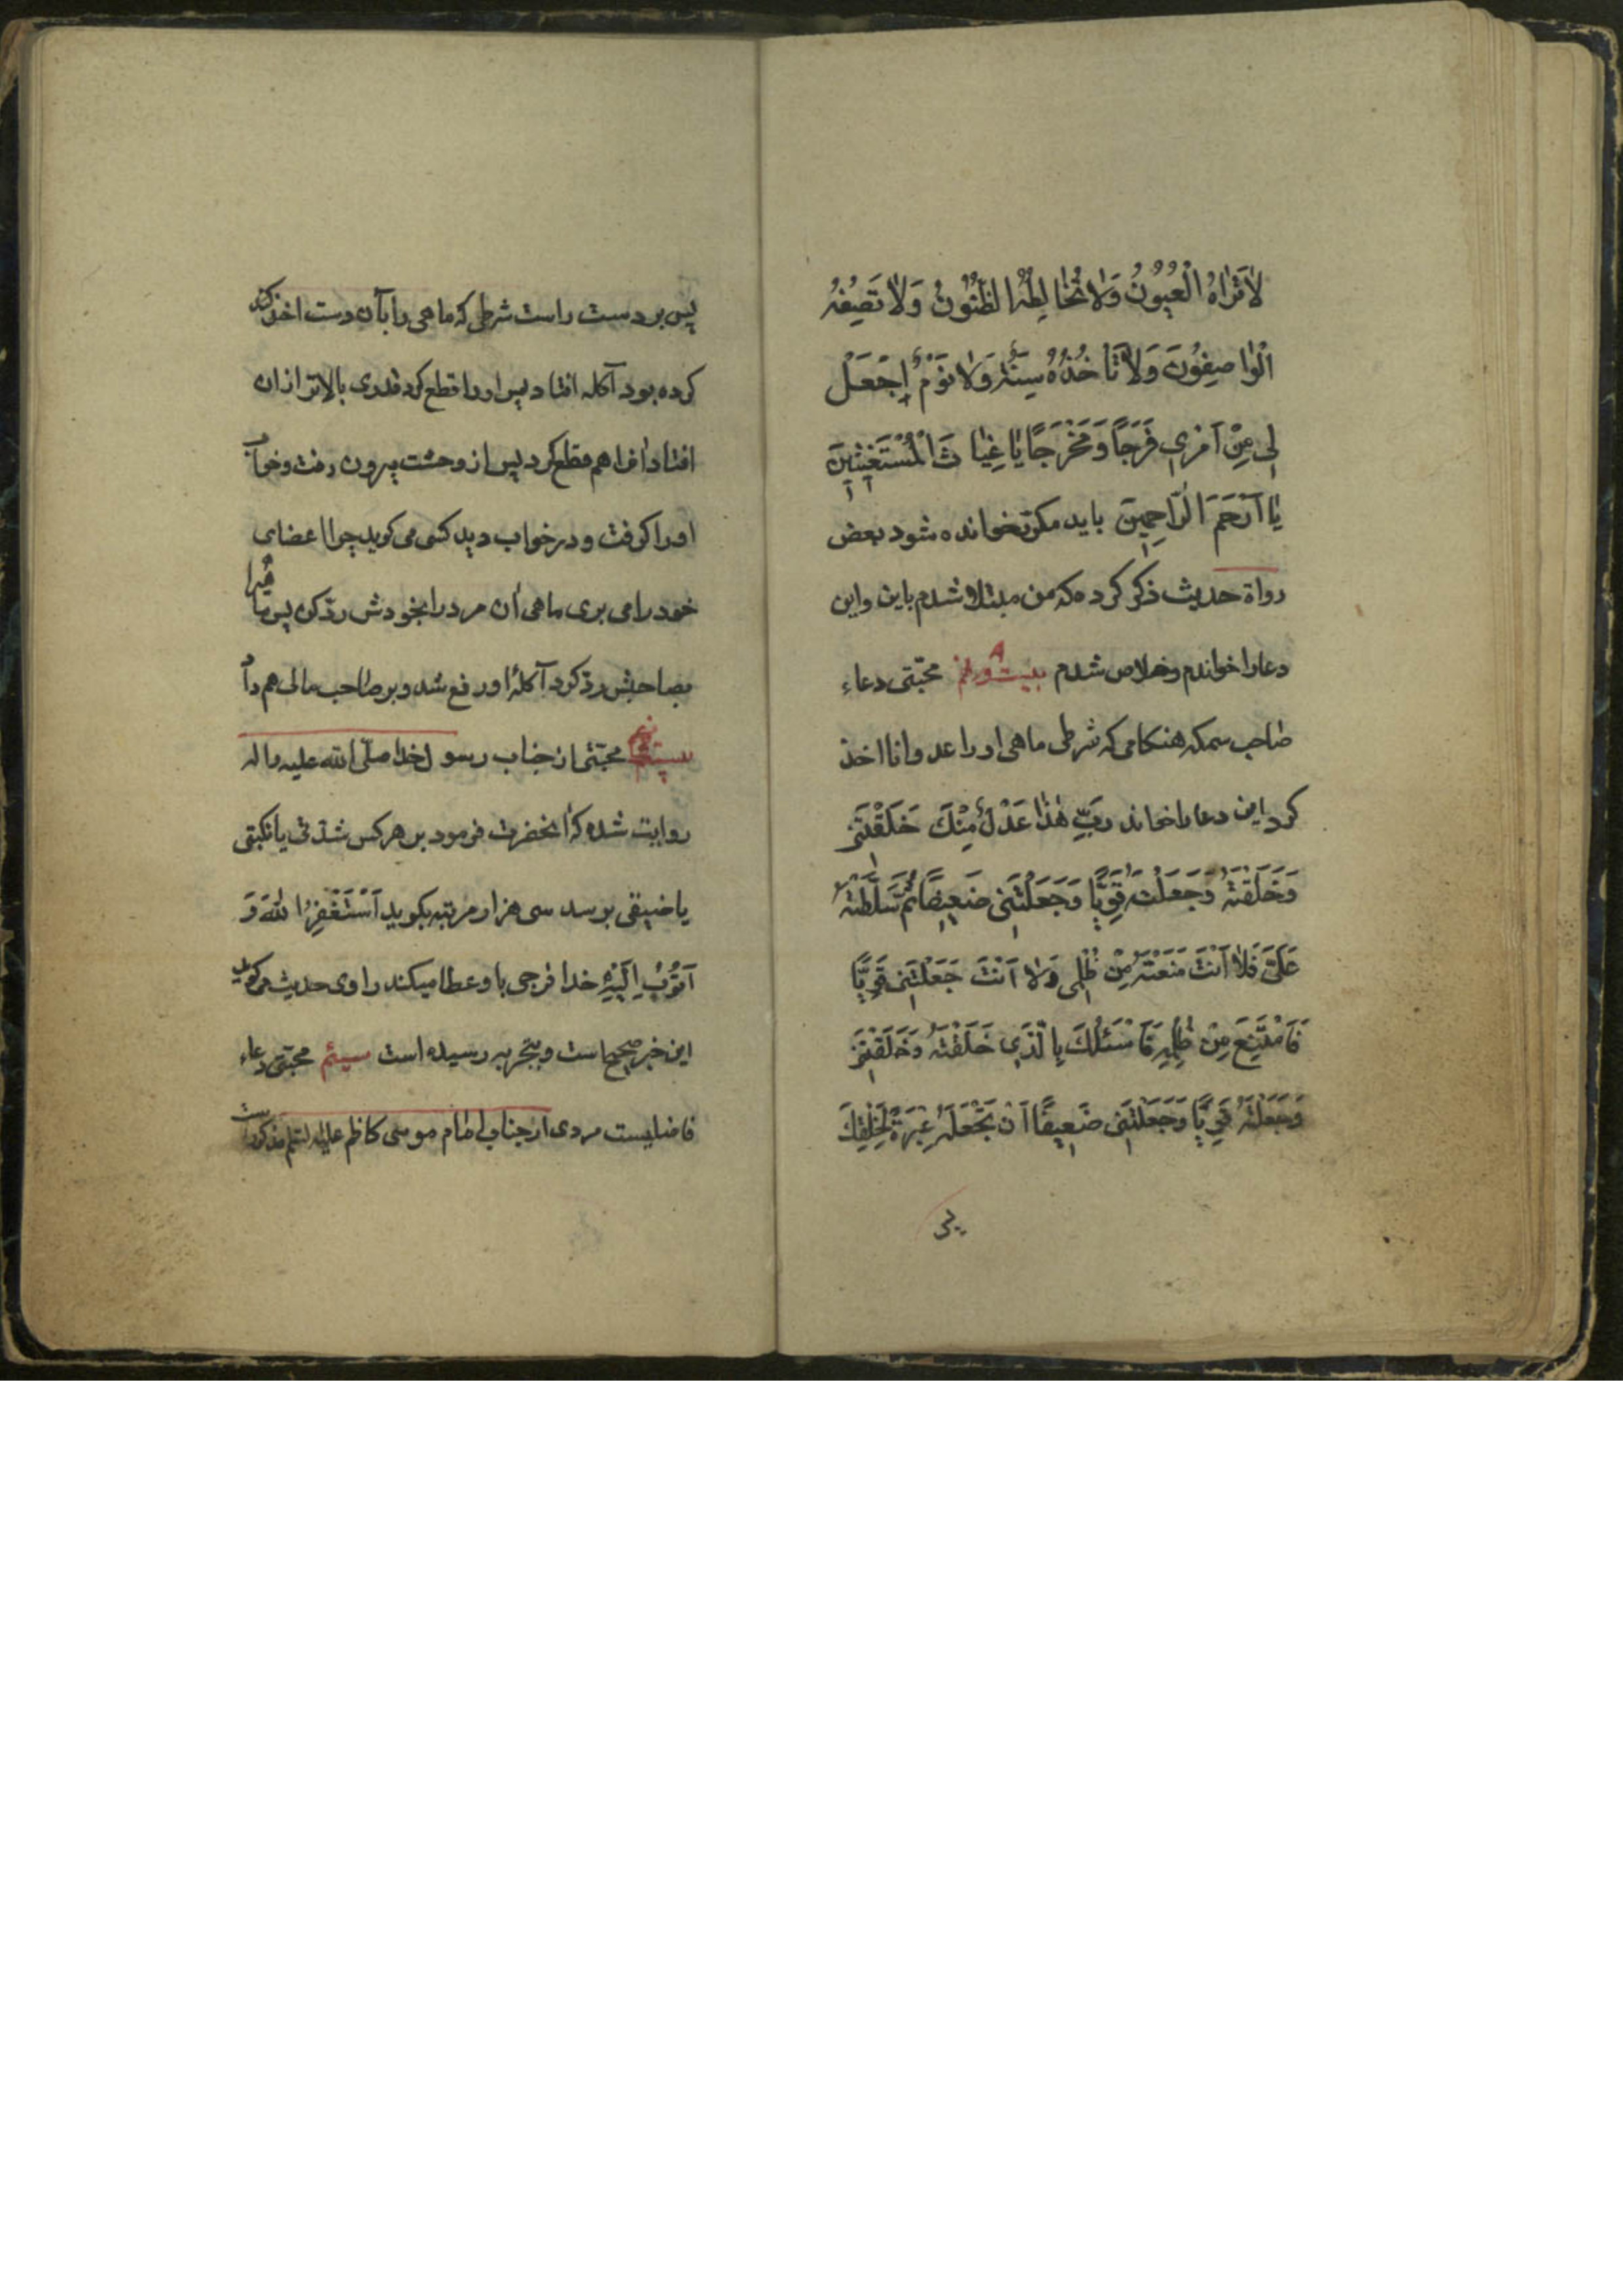 لاٰتَرٰاهُ الْعُيُونُ وَلاٰ تُخٰالِطُهُ الظُّنُونُ وَلاٰ تَصِفُهُ
الْوٰاصِفُونَ وَلاٰ تَأْخُذُهُ سِنَةٌ وَلاٰ نَوْمٌ اِجْعَلْ
لِی مِنْ اَمْرِی فَرَجًا وَ مَخْرَجًا یٰا غِیٰاثَ الْمُسْتَغِیثِینَ
یٰا اَرْحَمَ الرّٰاحِمِینَ باید مکرّر خوانده شود بعض
رواة حدیث ذکر کرده که من مبتلا شدم باین واین
دعا را خواندم و خلاص شدم مجتبی دعاء
صٰاحب سمکه هنکامی که شرطی ماهی او را عدوانا اخذ
کرد این دعا را خواند رَبِّ هٰذٰا عَدْلٌ مِنْكَ خَلَقْتَنِی
وَ خَلَقْتَهُ وَ جَعَلْتَهُ قَوِیًّا وَ جَعَلْتَنِی ضَعِیفًا ثُمَّ سَلَّطْتَهُ
عَلَیَّ فَلاٰ اَنْتَ مَنَعْتَهُ مِنْ ظُلْمِی وَلاٰ اَنْتَ جَعَلْتَنِی قَوِیًّا
فَاَمْتَنِعَ مِنْ ظُلْمِهِ فَاَسْئَلُكَ بِالَّذِی خَلَقْتَهُ وَ خَلَقْتَنِی
وَ جَعَلْتَهُ قَوِیًّا وَ جَعَلْتَنِی ضَعِیفًا اَنْ تَجْعَلَهُ عِبْرَةً لِخَلْقِكَ
پس
پس بر دست راست شرطی که ماهی را بآن دست اخذ
کرده بود آکله افتاد پس او را قطع کرد قدری بالاتر ازان
افتاد انرا هم قطع کرد پس از وحشت بیرون رفت و خواب
او را کرفت و در خواب دید کسی می کوید چرا اعضای
خود را می بری ماهی ان مرد را بخودش ردّ کن پس ماهیرا
بصاحبش ردّ کرد آکلۀ او رفع شد و بر صٰاحب مالی هم داد
مجتبی از جناب رسول خدا صلّی الله علیه واله
روایت شده که انحضرت فرمود بر هر کس شدّتی یا نکبتی
یا ضیقی برسد سی هزار مرتبه بکوید اَسْتَغْفِرُ اللّٰهَ وَ
اَتُوبُ اِلَیْهِ خدا فرجی باو عطا میکند راوی حدیث می کوید
این خبر صحیح است و بتجربه رسیده است سیئم مجتبی دعاء
فاضلیست مردی از جناب امٰام موسی کاظم علیه السّلم مذکور است